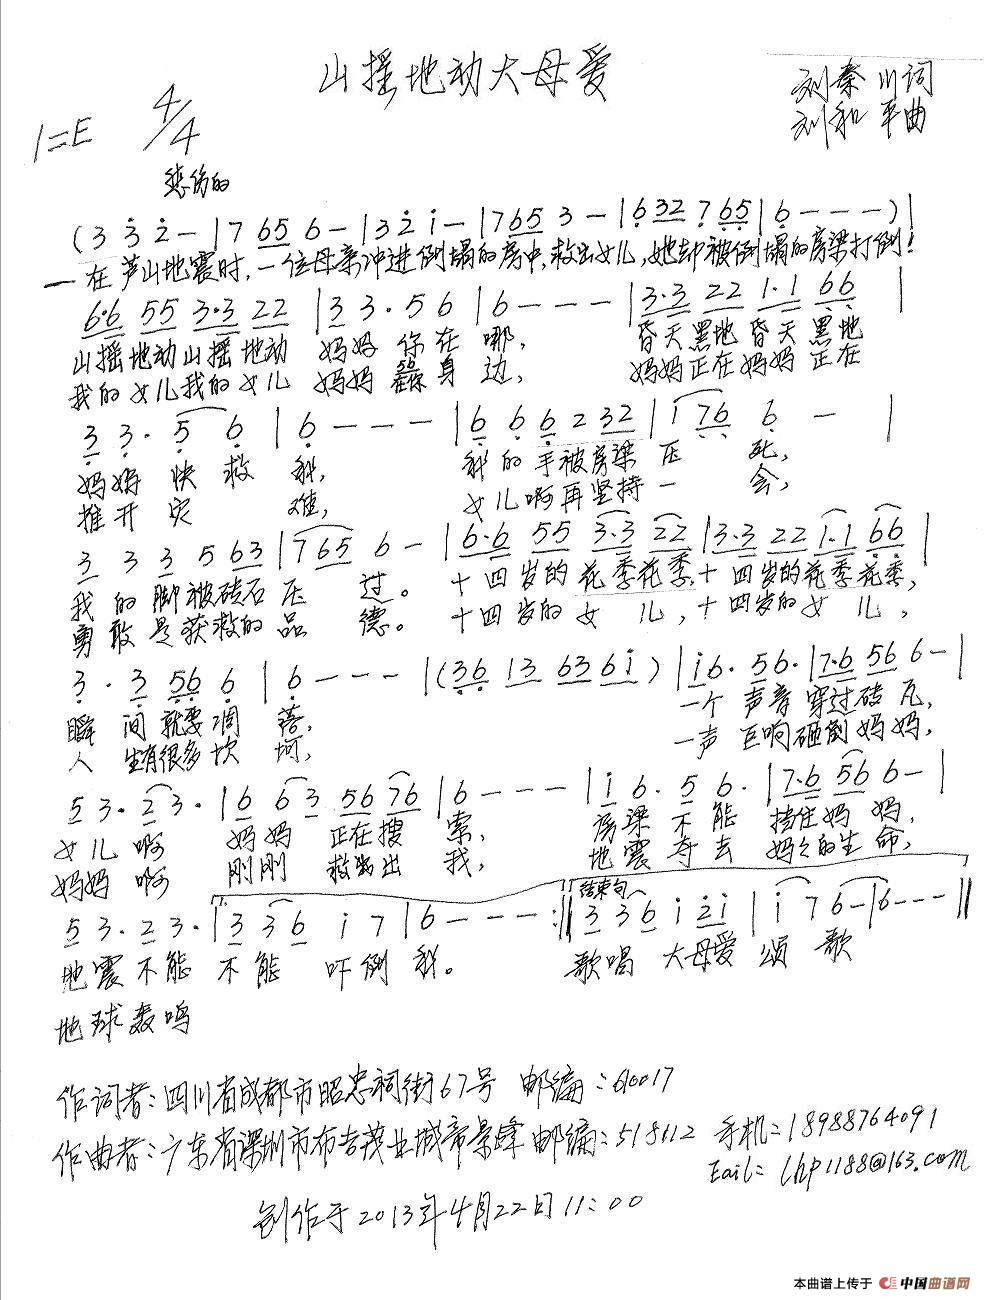 山摇地动大母爱
刘秦川词
刘和平曲
1=E 4/4
悲伤的
(3 3 2 - | 7 65 6 - | 3 2 i - | 7 65 3 - | 6 32 7 65 | 6 - - - ) |
一在芦山地震时,一位母亲冲进倒塌的房中,救出女儿,她却被倒塌的房梁打倒!
6·6 55 3·3 22 | 3 3· 5 6 | 6 - - - | 3·3 22 1·1 66 |
山摇地动山摇地动 妈妈 你在 哪, 昏天黑地昏天黑地
我的女儿我的女儿 妈妈 身 边, 妈妈正在妈妈正在
3 3· 5 6 | 6 - - - | 6 6 6 2 32 | i 76 6 - |
妈妈 快救 我, 我的手被房梁 压 死,
推开 灾 难, 女儿啊再坚持 一 会,
3 3 3 5 63 | 7 65 6 - | 6·6 55 3·3 22 | 3·3 22 1·1 66 |
我的脚被砖石压 过。 十四岁的花季花季,十四岁的花季花季,
勇敢是获救的品 德。 十四岁的女儿,十四岁的女儿,
3· 3 56 6 | 6 - - - | (36 13 63 6i) | i6· 56· | 7·6 56 6 - |
瞬间就要凋 落, 一个声音穿过砖瓦,
人生有很多坎 坷, 一声巨响砸倒妈妈,
5 3· 2 3· | 6 6 3 56 76 | 6 - - - | i 6· 5 6· | 7·6 56 6 - |
女儿啊 妈妈 正在搜 索, 房梁不能 挡住妈妈,
妈妈啊 刚刚 救出 我, 地震夺去 妈々的生命,
5 3· 2 3· | 3 3 6 i 7 | 6 - - - :‖ 3 3 6 i 2i | i 7 6 - | 6 - - - ‖
结束句
地震不能 不能 吓倒 我。 歌唱 大母爱 颂 歌
地球轰鸣
作词者:四川省成都市昭忠祠街67号 邮编:610017
作曲者:广东省深圳市布吉茂业城帝景峰 邮编:518112 手机:18988764091
Eail: lhp1188@163.com
创作于2013年4月22日11:00
本曲谱上传于 中国曲谱网